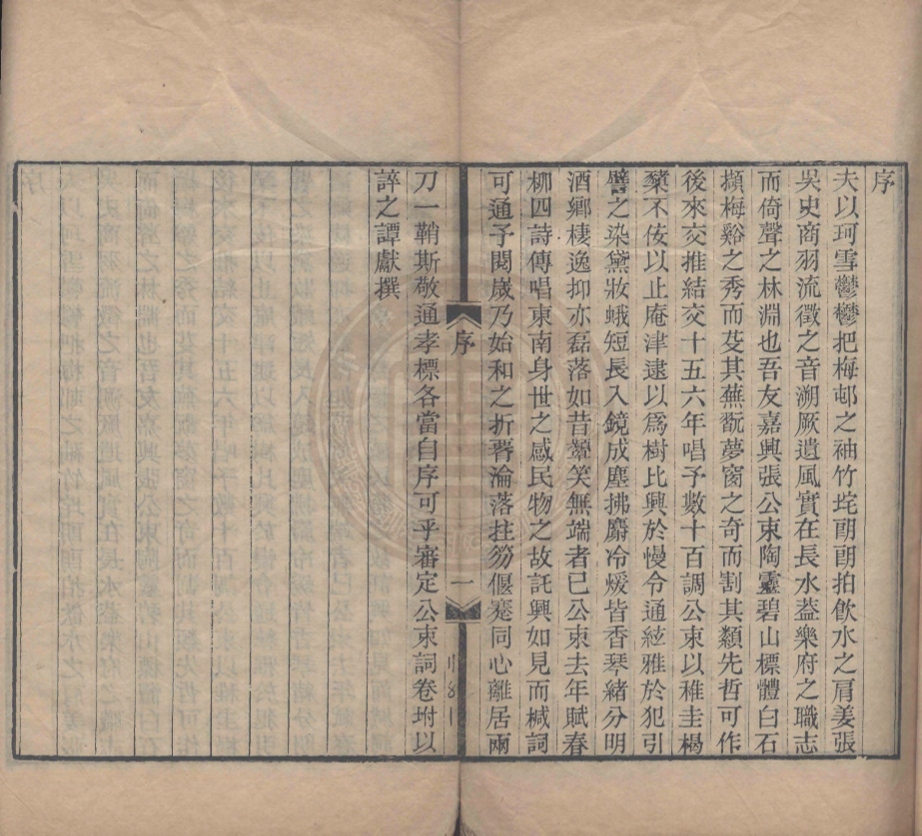 序
夫以珂雪鬱鬱把梅邨之袖竹垞朙朙拍飲水之肩姜張
吳史商羽流徵之音溯厥遺風實在長水葢樂府之職志
而倚聲之林淵也吾友嘉興張公朿陶靈碧山標體白石
擷梅谿之秀而芟其蕪翫夢窗之奇而割其纇先哲可作
後來交推結交十五六年唱予數十百調公朿以稚圭楬
櫫不佞以止庵津逮以爲樹比興於慢令通絃雅於犯引
譬之染黛妝蛾短長入鏡成塵拂麝冷煖皆香琴緒分明
酒鄉棲逸抑亦磊落如昔顰笑無端者已公朿去年賦春
柳四詩傳唱東南身世之感民物之故託興如見而椷詞
可通予閱歲乃始和之折罯淪落拄笏偃蹇同心離居兩
序
一
刀一鞘斯敬通孝標各當自序可乎審定公朿詞卷坿以
誶之譚獻撰